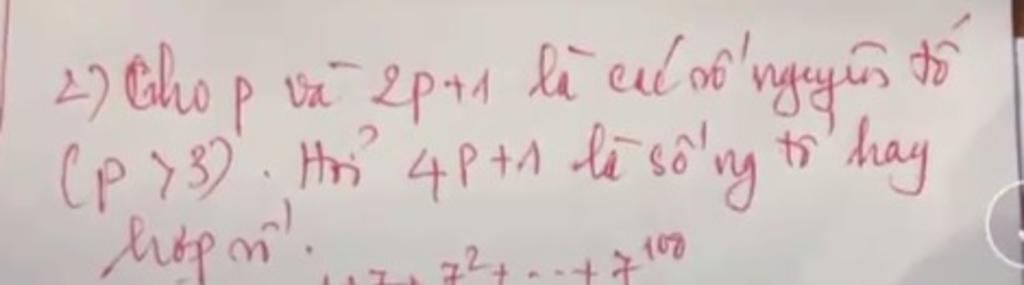 2) Cho p và 2p+1 là các số nguyên tố
(p > 3). Hỏi 4p+1 là số ng tố hay
hợp số.
7 + 7² + ... + 7¹⁰⁰